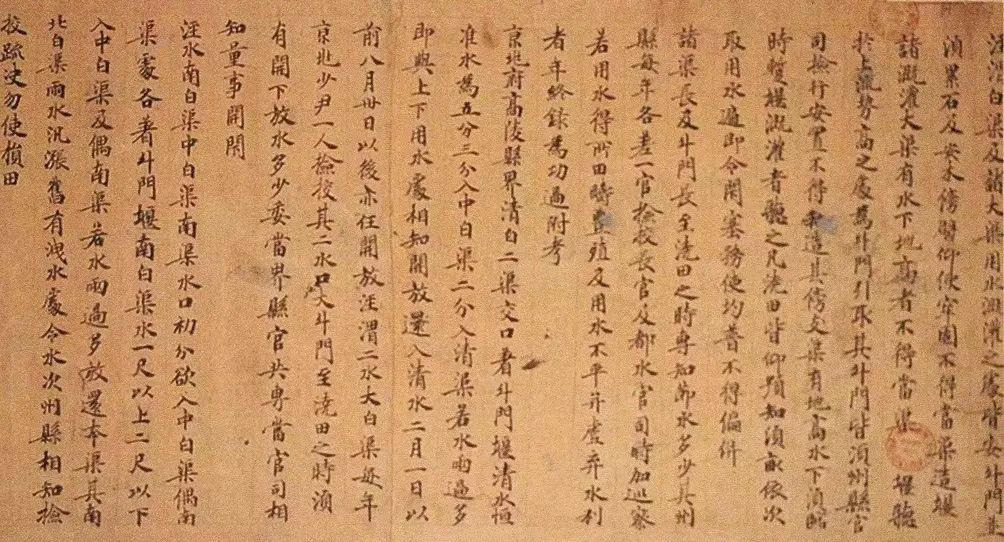 涇渭白渠及諸大渠用水溉灌之處皆安斗門並
須累石及安木傍壁仰使牢固不得當渠造堰
諸溉灌大渠有水下地高者不得當渠 堰聽
於上流勢高之處為斗門引取其斗門皆須州縣官
司檢行安置不得私造其傍支渠有地高水下須臨
時暫堰溉灌者聽之凡澆田皆仰預知頃畝依次
取用水遍即令閉塞務使均普不得偏併
諸渠長及斗門長至澆田之時專知節水多少其州
縣每年各差一官檢校長官及都水官司時加巡察
若用水得所田疇豊殖及用水不平并虛弃水利
者年終錄為功過附考
京兆府高陵縣界清白二渠交口著斗門堰清水恒
准水為五分三分入中白渠二分入清渠若水雨過多
即與上下用水處相知開放還入清水二月一日以
前八月卅日以後亦任開放涇渭二水大白渠每年
京兆少尹一人檢校其二水口大斗門至澆田之時須
有開下放水多少委當界縣官共專當官司相
知量事開閇
涇水南白渠中白渠南渠水口初分欲入中白渠偶南
渠處各著斗門堰南白渠水一尺以上二尺以下
入中白渠及偶南渠若水雨過多放還本渠其南
北白渠雨水汎漲舊有洩水處令水次州縣相知檢
校疏決勿使損田